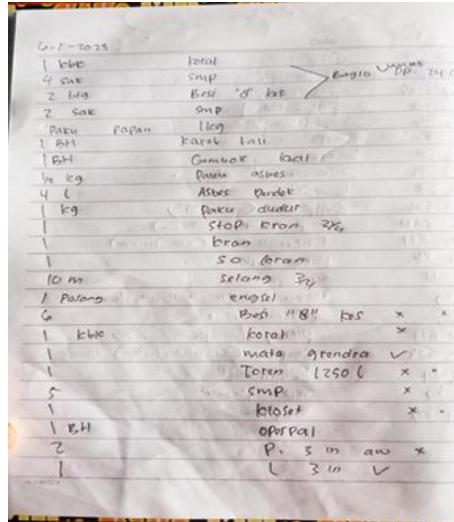 6-1-2025
1 kbk koral
4 sak smp
2 btg Besi "8" kos
2 sak smp
Paku Papan 1kg
1 BH Karet tali
1 BH Gembok
kg Paku asbes
4 l Asbes Pendek
1 kg Paku dudur
1 Stop kran 3/4
1 kran
1 so kran
10 m selang 3/4
1 Pasang engsel
6 Besi "8" kos x
1 kbk koral x
1 mata grendra ✓
1 Toren 1250 l x
5 smp x
1 kloset x
1 BH oporpal
2 P. 3 in aw x
1 L 3 in ✓